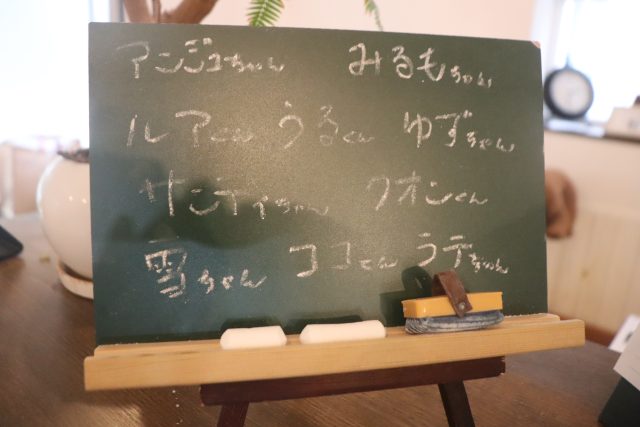 アンジュちゃん みるもちゃん
ルアくん うるくん ゆずちゃん
サンティちゃん クオンくん
雪ちゃん ココくん ラテちゃん